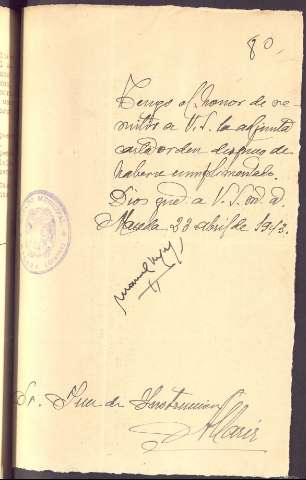 80
Tengo el honor de re-
mitir a V.S. la adjunta
carta orden despues de
haberse cumplimentado.
Dios gue a V.S. m. a.
Maceda 23 abril de 1913.
Manuel
Sr. Juez de Instruccion
Allariz